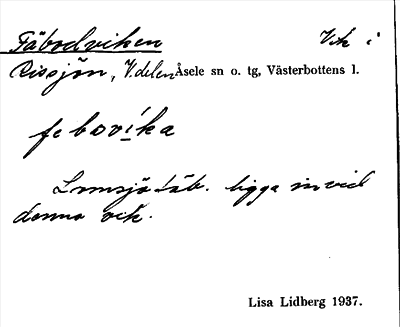 Fäbodviken Vik i
Rissjön, V.delen Åsele sn o. tg, Västerbottens l.
febovika
Lomsjö fäb. ligga invid
denna vik.
Lisa Lidberg 1937.